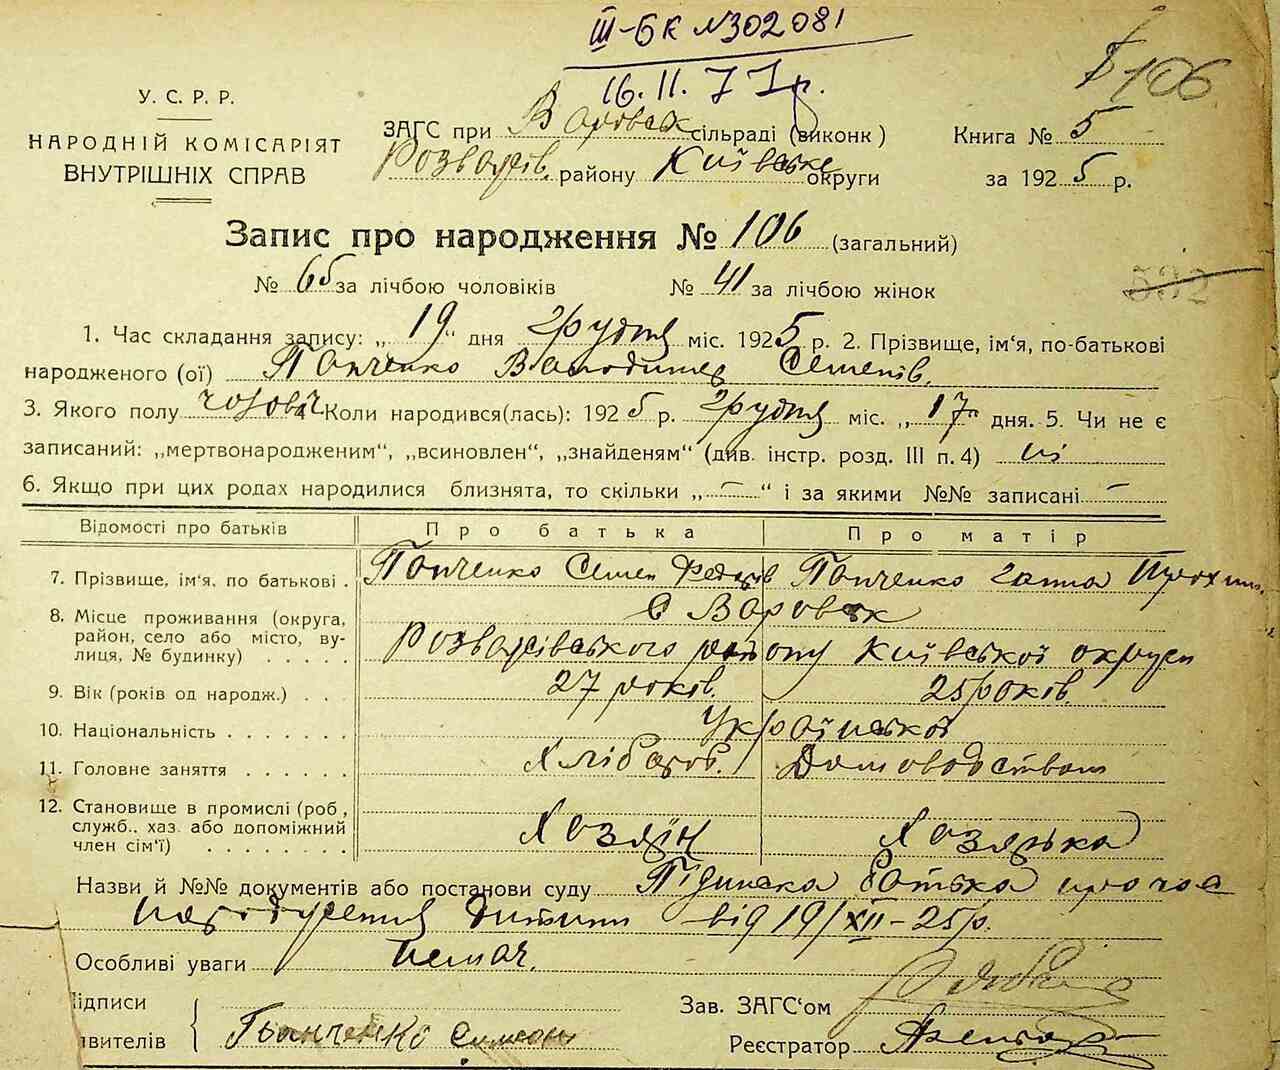 III-БК №302081
16.II.71р.
106
У. С. Р. Р.
НАРОДНІЙ КОМІСАРІЯТ
ВНУТРІШНІХ СПРАВ
ЗАГС при Воровськ сільраді (виконк)
Розважів. району Київської округи
Книга № 5
за 1925 р.
Запис про народження № 106 (загальний)
№ 65 за лічбою чоловіків № 41 за лічбою жінок
532
1. Час складання запису: „19“ дня грудня міс. 1925 р. 2. Прізвище, ім'я, по-батькові
народженого (ої) Панченко Володимер Семенів.
3. Якого полу чоловіч. Коли народився(лась): 1925 р. грудня міс. „17“ дня. 5. Чи не є
записаний: „мертвонародженим“, „всиновлен“, „знайденям“ (див. інстр. розд. III п. 4) ні
6. Якщо при цих родах народилися близнята, то скільки „—“ і за якими №№ записані —
Відомості про батьків Про батька Про матір
7. Прізвище, ім'я, по батькові . Панченко Семен Федорів Панченко Ганна Прохим.
8. Місце проживання (округа, район, село або місто, вулиця, № будинку) . . . . . с Воровськ
Розважівського району Київської округи
9. Вік (років од народж.) . . 27 років. 25 років.
10. Національність . . . . . . . Української
11. Головне заняття . . . . . . Хлібороб. Домоводством
12. Становище в промислі (роб, служб., хаз. або допоміжний член сім'ї) . . . . . . . . Хозяїн Хозяька
Назви й №№ документів або постанови суду Підписка батька про час
народження дитини від 19/XII-25р.
Особливі уваги немає.
Підписи
явителів
Панченко Симеон
Зав. ЗАГС'ом
Реєстратор